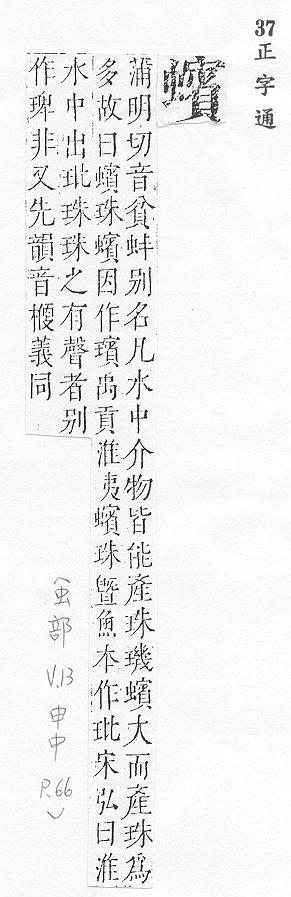 37
正字通
蠙
蒲明切音貧蚌别名凡水中介物皆能產珠璣蠙大而產珠爲
多故曰蠙珠蠙因作璸禹貢淮夷蠙珠曁魚本作玭宋弘曰淮
水中出玭珠珠之有聲者别
作琕非又先韻音楩義同
(虫部 V.13 申中 P.66)